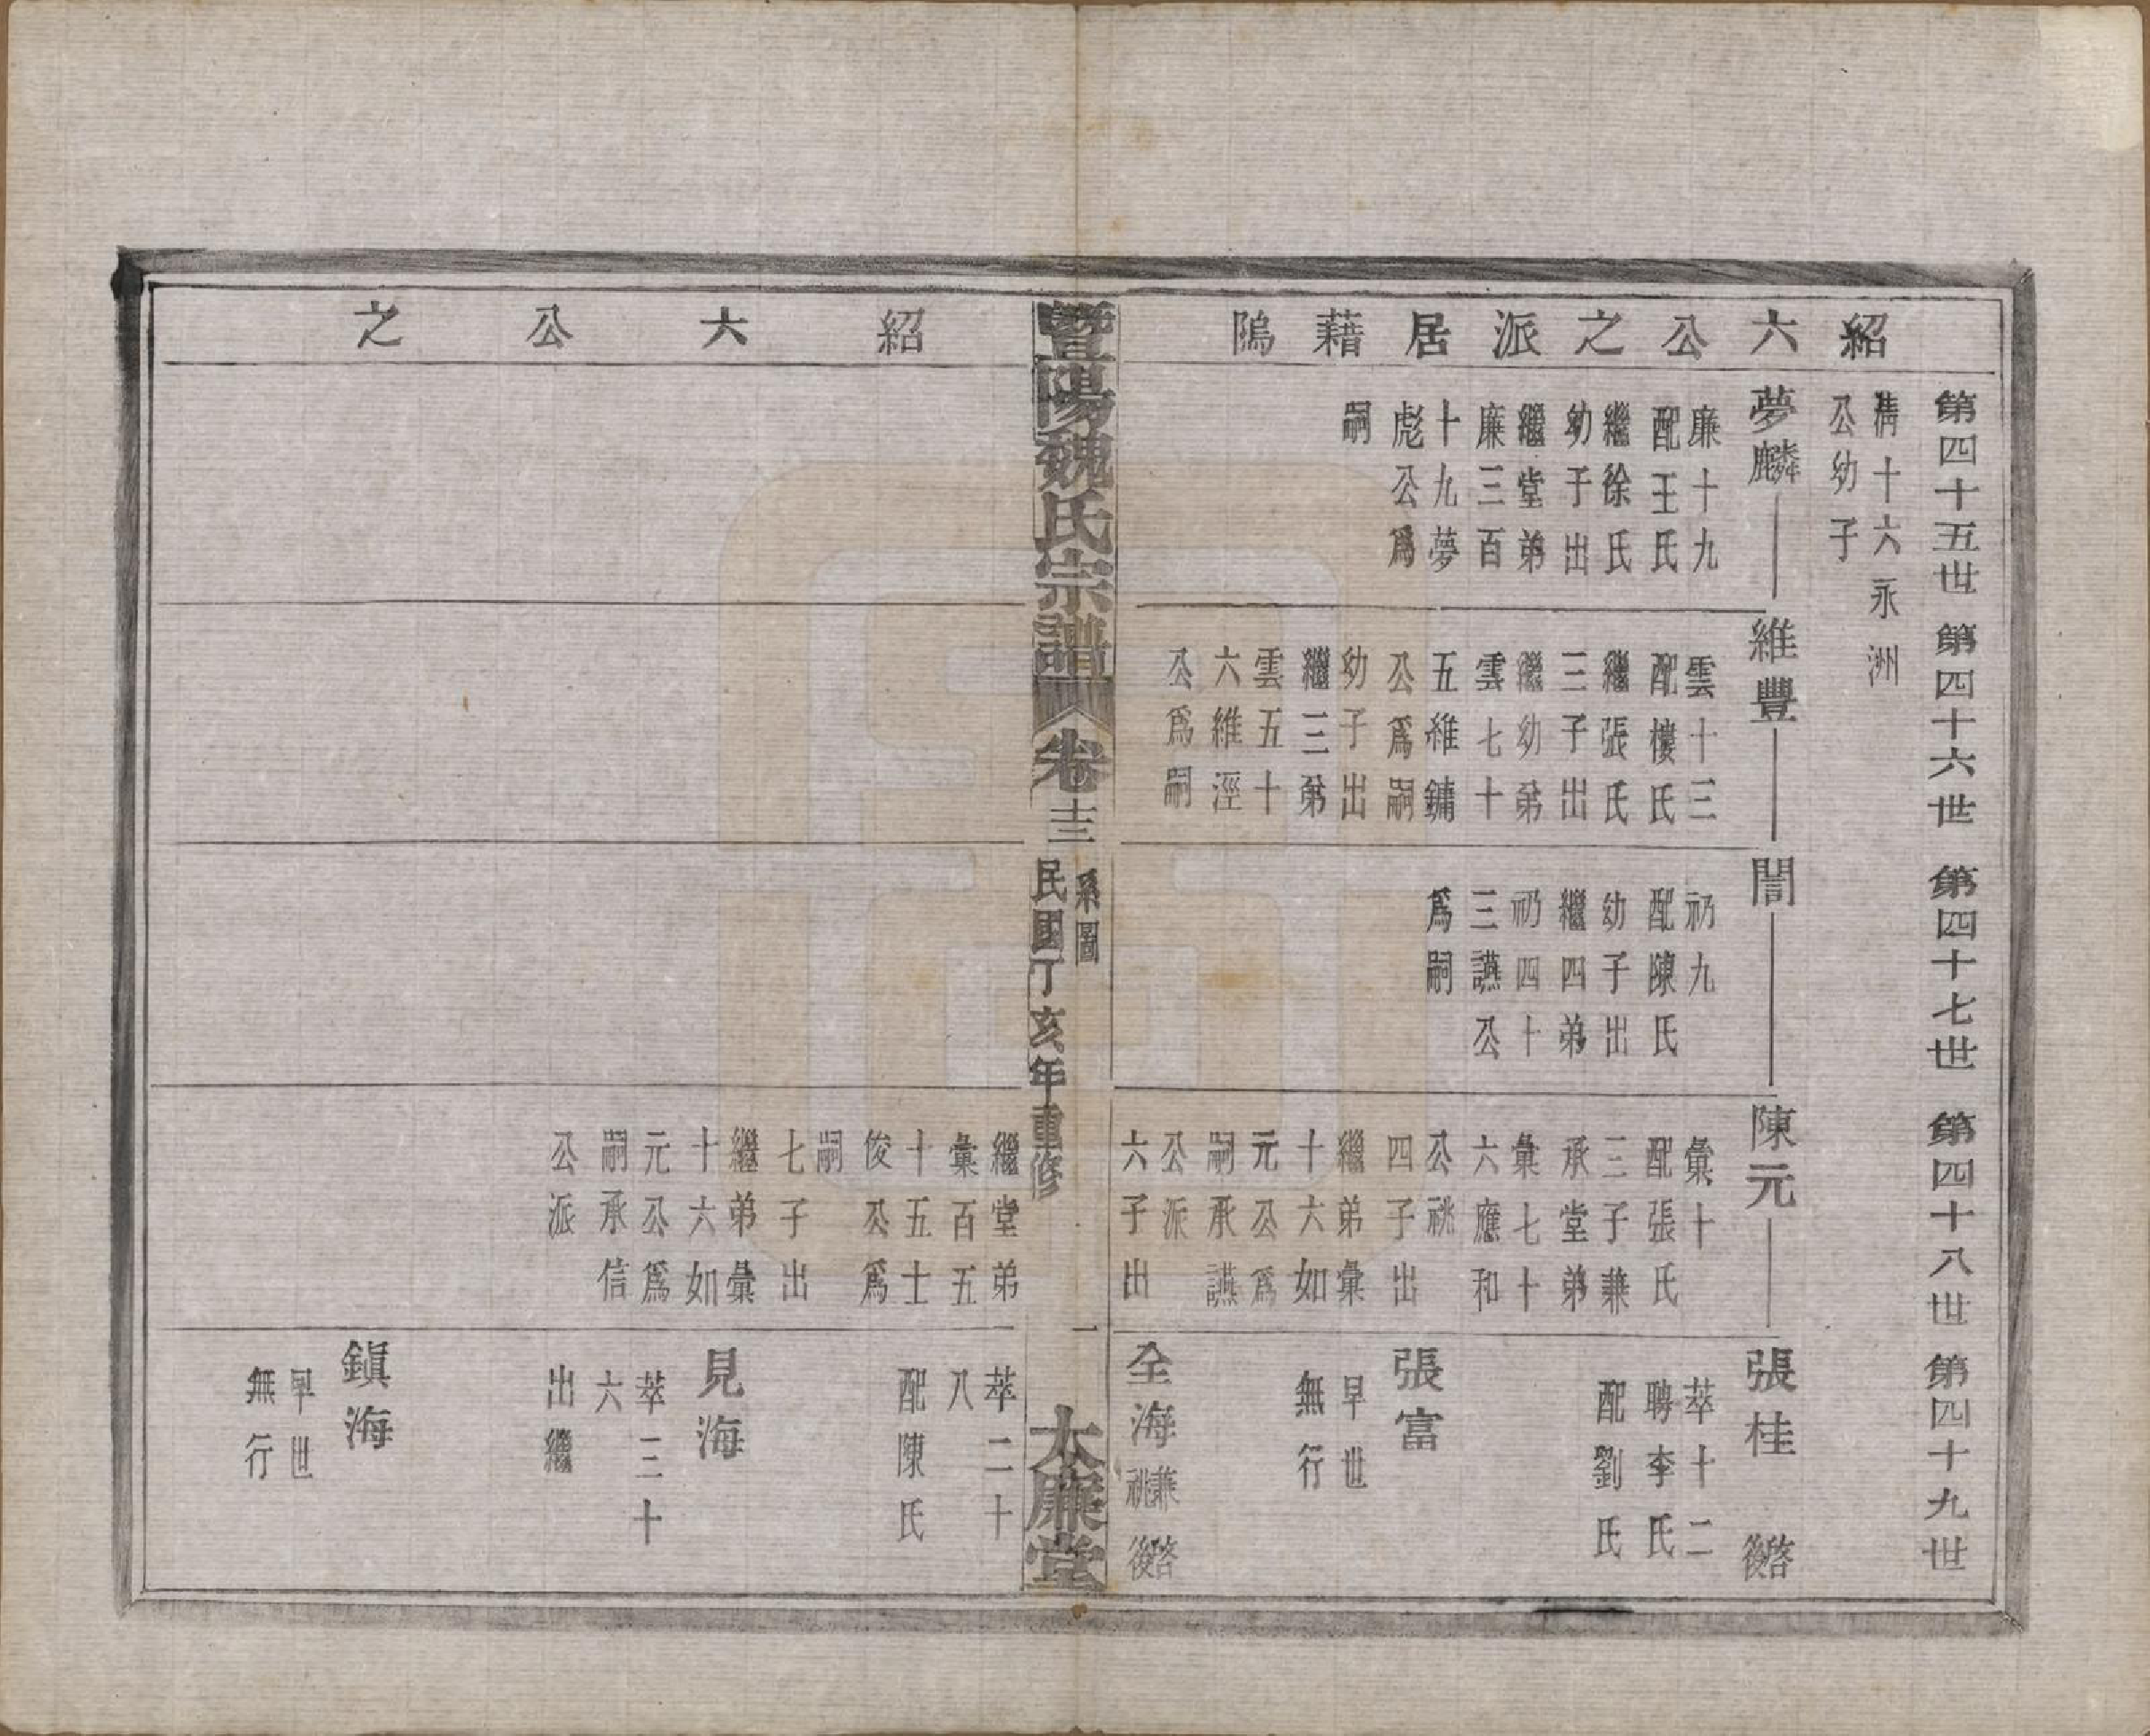 紹六公之派居藉隖
第四十五世
第四十六世
第四十七世
第四十八世
第四十九世
十六永洲
公幼子
夢麟
廉十九
配王氏
繼徐氏
幼子出
繼堂弟
廉三百
十九夢
彪公爲
嗣
維豐
雲十三
配樓氏
繼張氏
三子出
繼幼弟
雲七十
五維鏞
公爲嗣
幼子出
繼三弟
雲五十
六維涇
公爲嗣
誾
礽九
配陳氏
幼子出
繼四弟
礽四十
三讌公
爲嗣
陳元
彙十
配張氏
三子兼
承堂弟
彙七十
六應和
公祧
四子出
繼弟彙
十六如
元公爲
嗣承讌
公派
六子出
張桂 啓後
萃十二
聘李氏
配劉氏
張富
早世
無行
全海 兼祧 啓後
暨陽魏氏宗譜
卷十三
系圖
民國丁亥年重修
一
大廉堂
紹六公之
繼堂弟
彙百五
十五士
俊公爲
嗣
七子出
繼弟彙
十六如
元公爲
嗣承信
公派
萃二十
八
配陳氏
見海
萃三十
六
出繼
鎭海
早世
無行